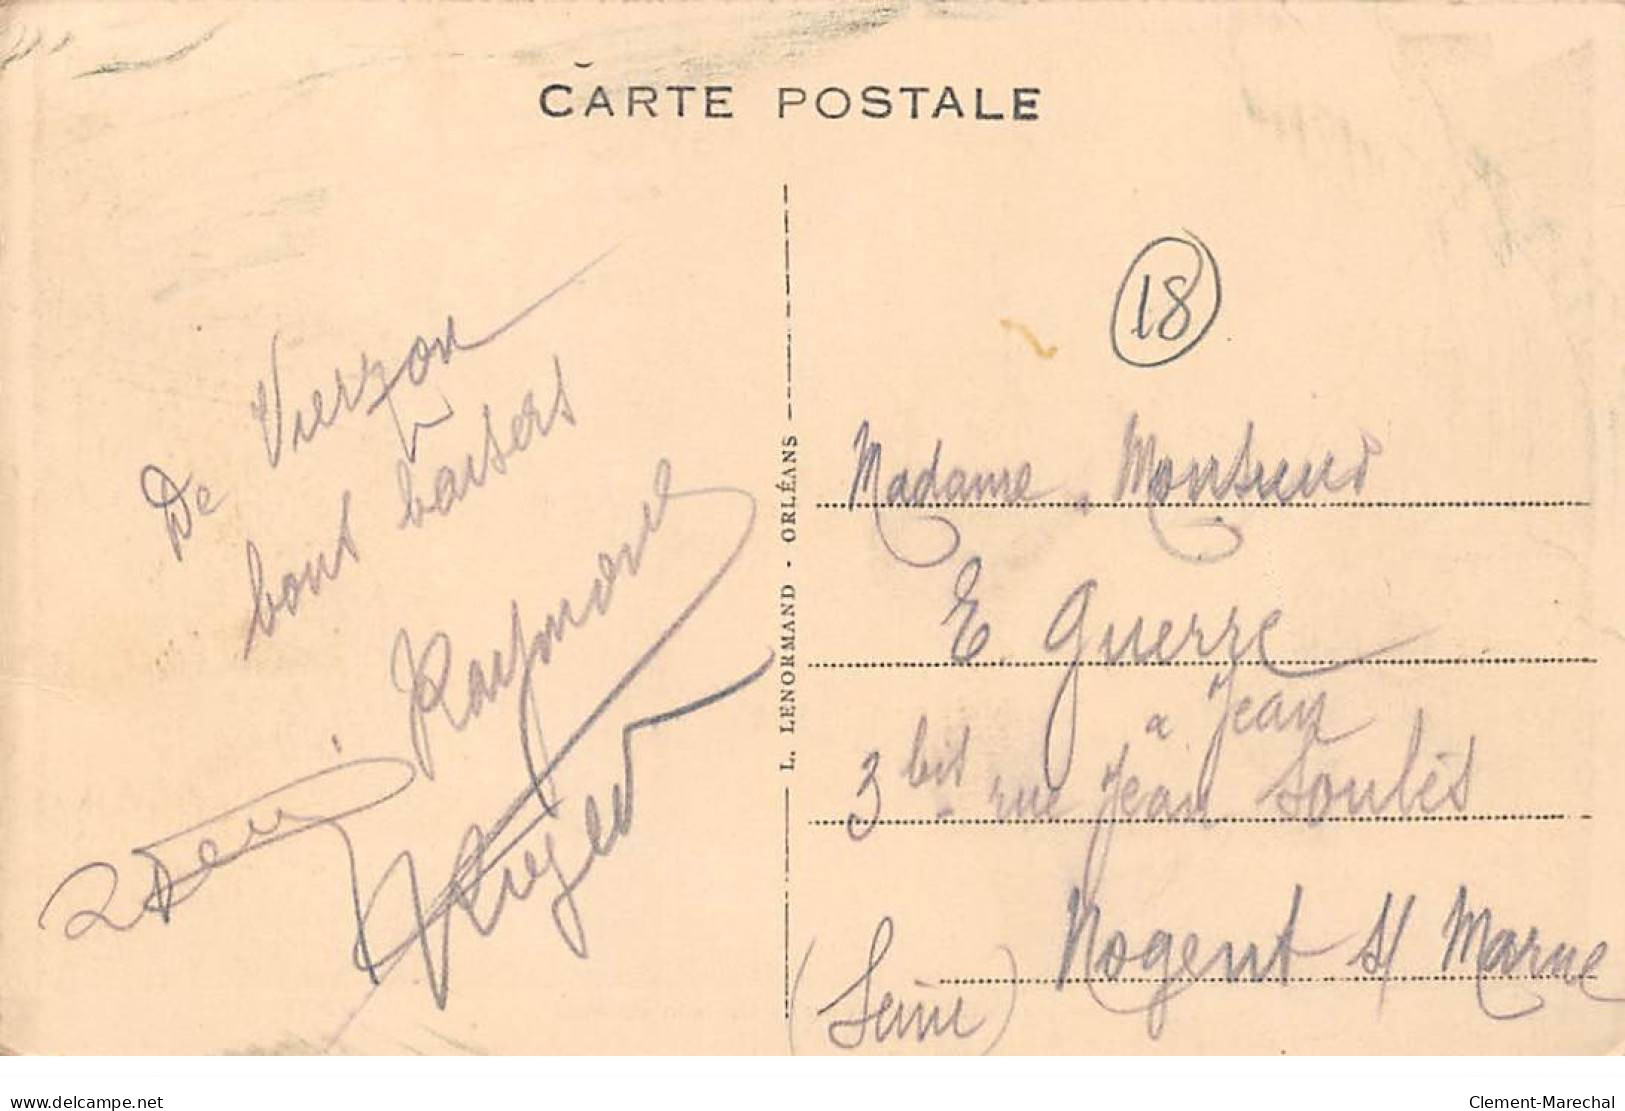 CARTE POSTALE
18
De Vierzon
bons baisers
Raymond
L. LENORMAND - ORLÉANS
Madame Monsieur
E. Guerre
a Jean
3 bis rue Jean Soulès
Nogent s/ Marne
(Seine)
www.delcampe.net
Clement-Marechal